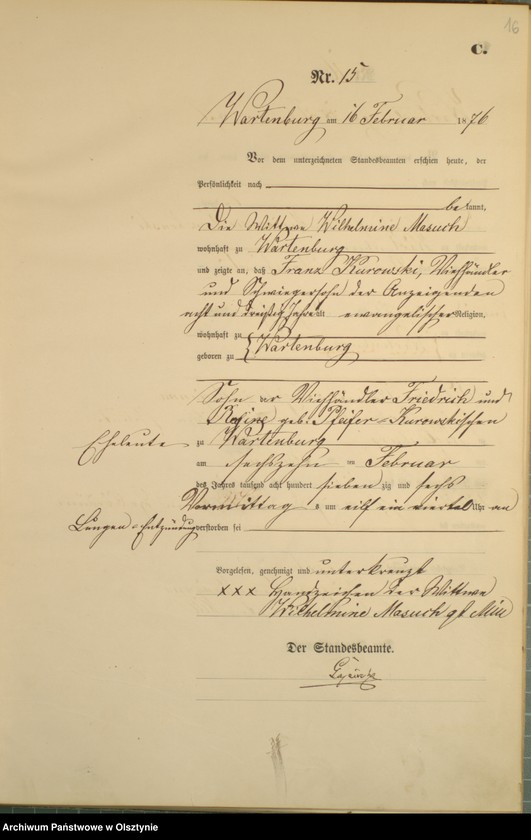 16
C.
Nr. 15
Wartenburg am 16 Februar 1876
Vor dem unterzeichneten Standesbeamten erschien heute, der
Persönlichkeit nach
bekannt,
Die Wittwe Wilhelmine Masuch
wohnhaft zu Wartenburg
und zeigte an, daß Franz Kurowski, Viehhändler
und Schwiegersohn der Anzeigenden
acht und dreißig Jahre alt evangelischer Religion,
wohnhaft zu
geboren zu Wartenburg
Sohn der Viehhändler Friedrich und
geb. Pfeifer-Kurowskischen
Eheleute zu Wartenburg
am sechszehn ten Februar
des Jahres tausend acht hundert siebenzig und sechs
Vormittag s um eilf ein viertel Uhr an
Lungen-Entzündung verstorben sei
Vorgelesen, genehmigt und unterkreuzt
xxx Handzeichen der Wittwe
Wilhelmine Masuch
Der Standesbeamte.
Archiwum Państwowe w Olsztynie